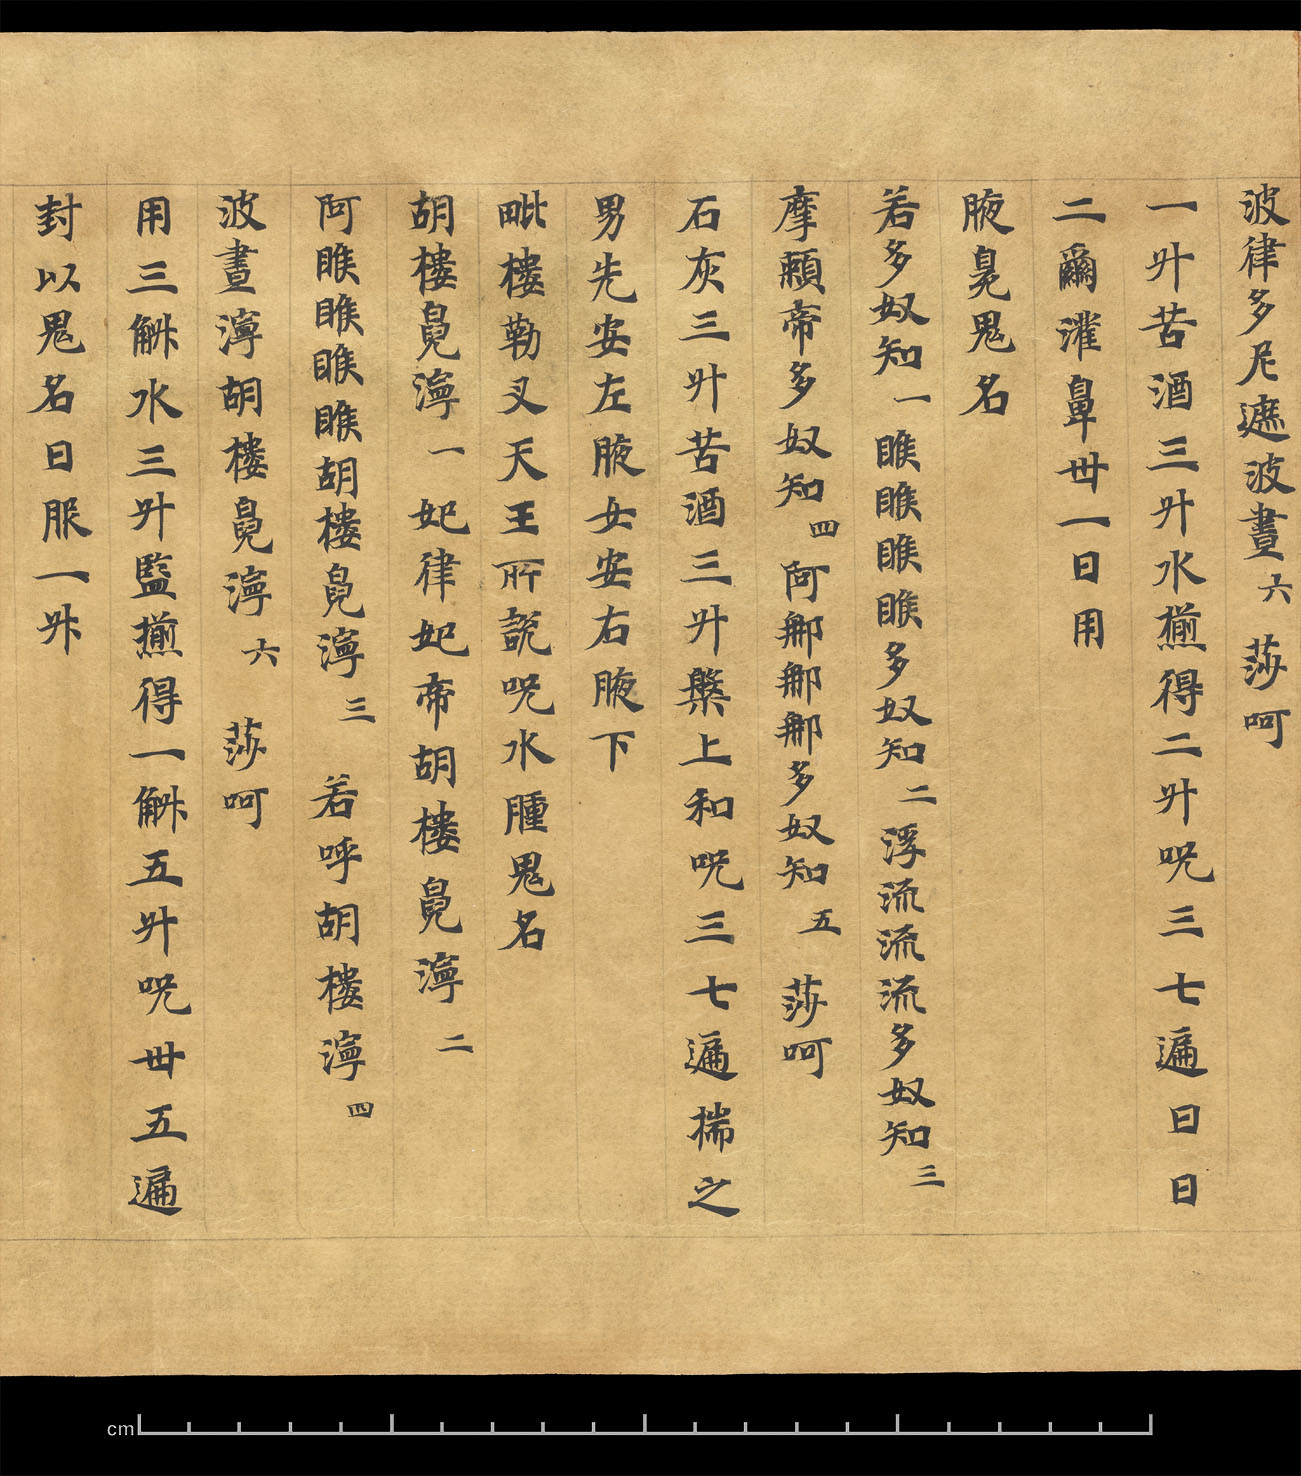 波律多尼遮波晝六 莎呵
一升苦酒三升水煎得二升呪三七遍日日
二爾灌鼻卅一日用
腋臭鬼名
若多奴知一睺睺睺睺多奴知二浮流流流多奴知三
摩賴帝多奴知四阿那那那多奴知五 莎呵
石灰三升苦酒三升槃上和呪三七遍揣之
男先安左腋女安右腋下
毗樓勒叉天王所說呪水腫鬼名
胡樓㝹濘一妃律妃帝胡樓㝹濘二
阿睺睺睺睺胡樓㝹濘三 若呼胡樓濘四
波晝濘胡樓㝹濘六 莎呵
用三斛水三升監煎得一斛五升呪卅五遍
封以鬼名日服一升
cm